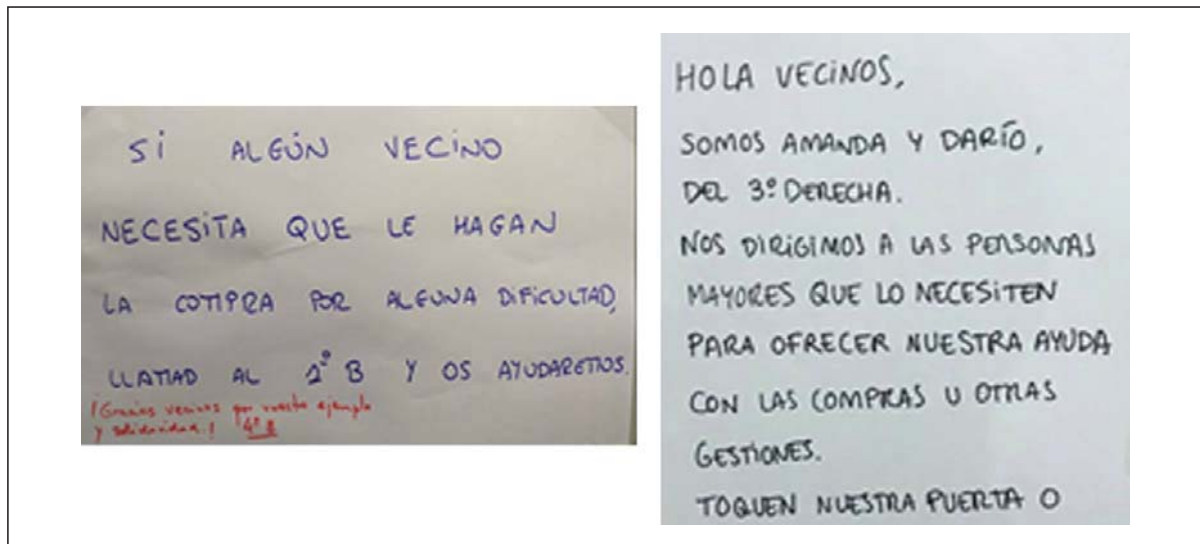 SI ALGÚN VECINO
NECESITA QUE LE HAGAN
LA COMPRA POR ALGUNA DIFICULTAD,
LLAMAD AL 2º B Y OS AYUDAREMOS.
¡Gracias vecinos por vuestro ejemplo
y solidaridad! 4º B
HOLA VECINOS,
SOMOS AMANDA Y DARÍO,
DEL 3º DERECHA.
NOS DIRIGIMOS A LAS PERSONAS
MAYORES QUE LO NECESITEN
PARA OFRECER NUESTRA AYUDA
CON LAS COMPRAS U OTRAS
GESTIONES.
TOQUEN NUESTRA PUERTA O